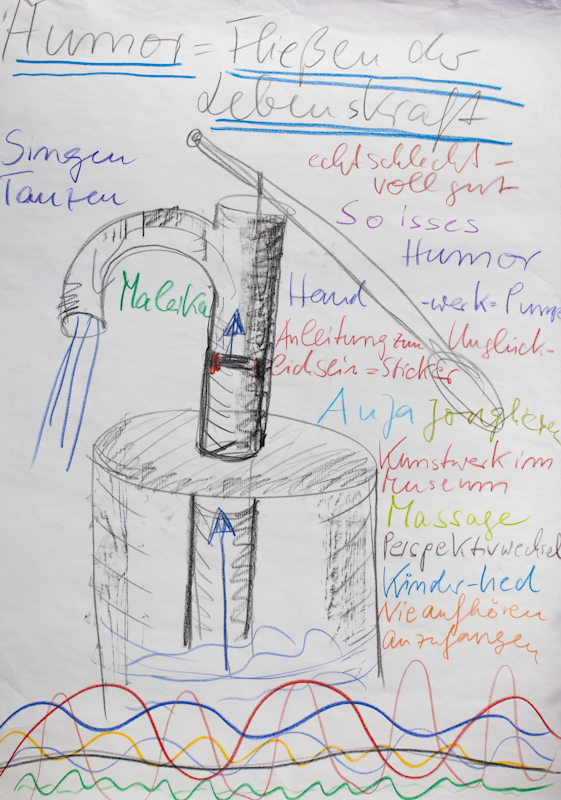 Humor = Fließen der
Lebenskraft
Singen
Tanzen
echt schlecht -
voll gut
So isses
Humor
Maleika
Hand -werk = Pumpe
Anleitung zum Unglück-
lichsein = Sticker
Anja Jonglieren
Kunstwerk im
Museum
Massage
Perspektivwechsel
Kinder-lied
Nie aufhören
anzufangen